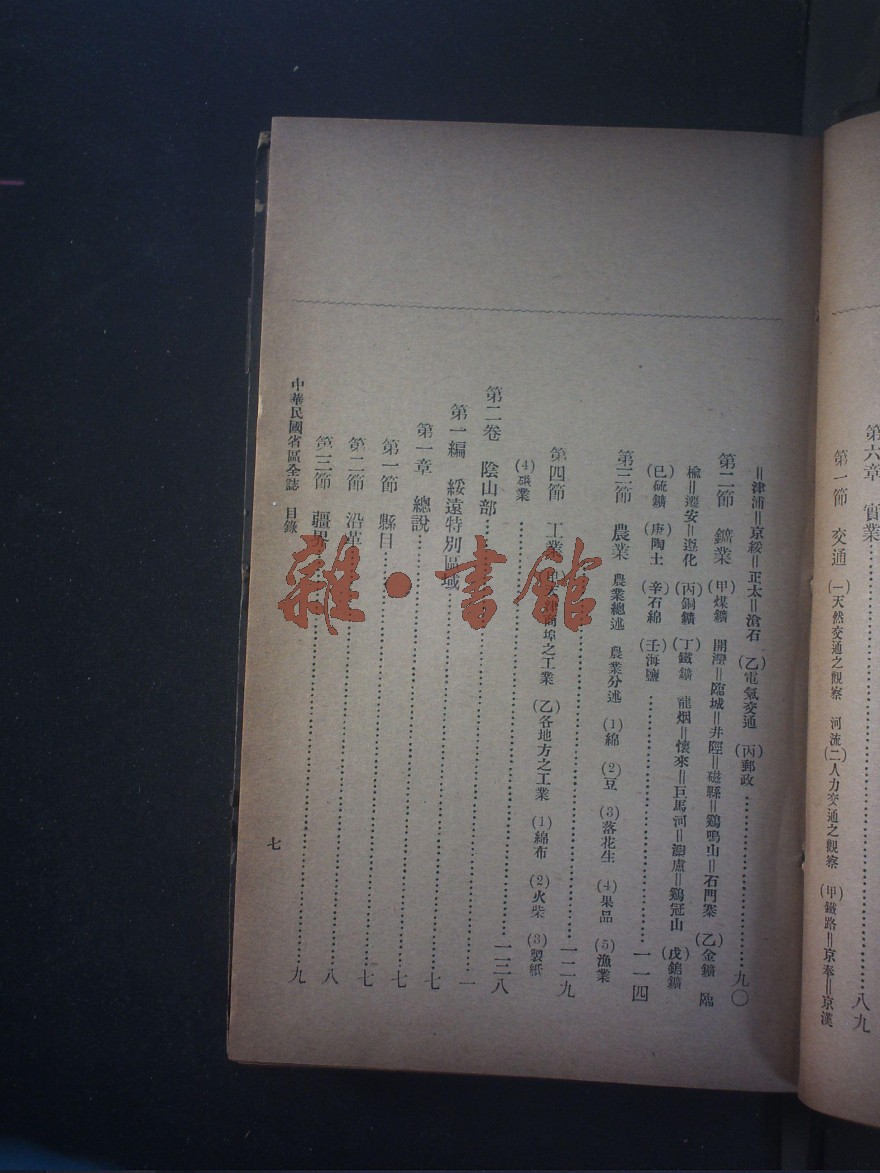 第六章　實業…………八九
第一節　交通　(一)天然交通之觀察　河流(二)人力交通之觀察　(甲)鐵路＝京奉＝京漢
＝津浦＝京綏＝正太＝滄石　(乙)電氣交通　(丙)郵政…………九〇
第二節　鑛業　(甲)煤鑛　開灤＝臨城＝井陘＝磁縣＝鷄鳴山＝石門寨　(乙)金鑛　臨
榆＝遷安＝遵化　(丙)銅鑛　(丁)鐵鑛　龍烟＝懷來＝巨馬河＝灤盧＝鷄冠山　(戊)鉛鑛
(巳)硫鑛　(庚)陶土　(辛)石綿　(壬)海鹽…………一一四
第三節　農業　農業總述　農業分述　(1)綿　(2)豆　(3)落花生　(4)果品　(5)漁業
…………一二九
第四節　工業　(甲)天津商埠之工業　(乙)各地方之工業　(1)綿布　(2)火柴　(3)製紙
(4)礦業…………一三八
第二卷　陰山部…………一
第一編　綏遠特別區域
第一章　總說…………七
第一節　縣目…………七
第二節　沿革…………八
第三節　疆界…………九
中華民國省區全誌　目錄
七
雜·書館